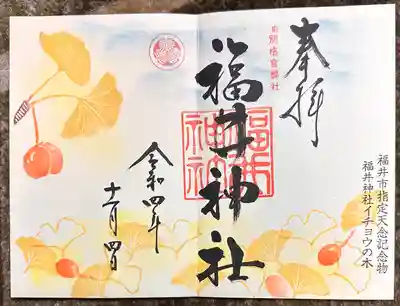 奉拝
旧別格官幣社
福井神社
福井神社
令和四年
十一月四日
福井市指定天念記念物
福井神社イチョウの木